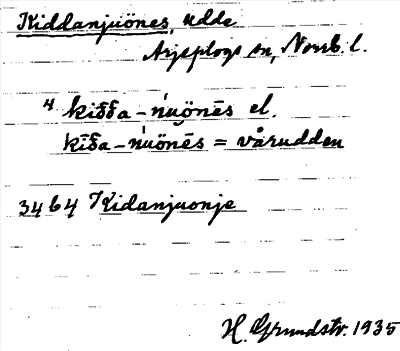 Kiddanjuönes, udde
Arjeplogs sn, Norrb. l.
4 kiđđa-ńuönēs el.
kīđa-ńuönēs = vårudden
3464 Kidanjuonje
H. Grundstr. 1935